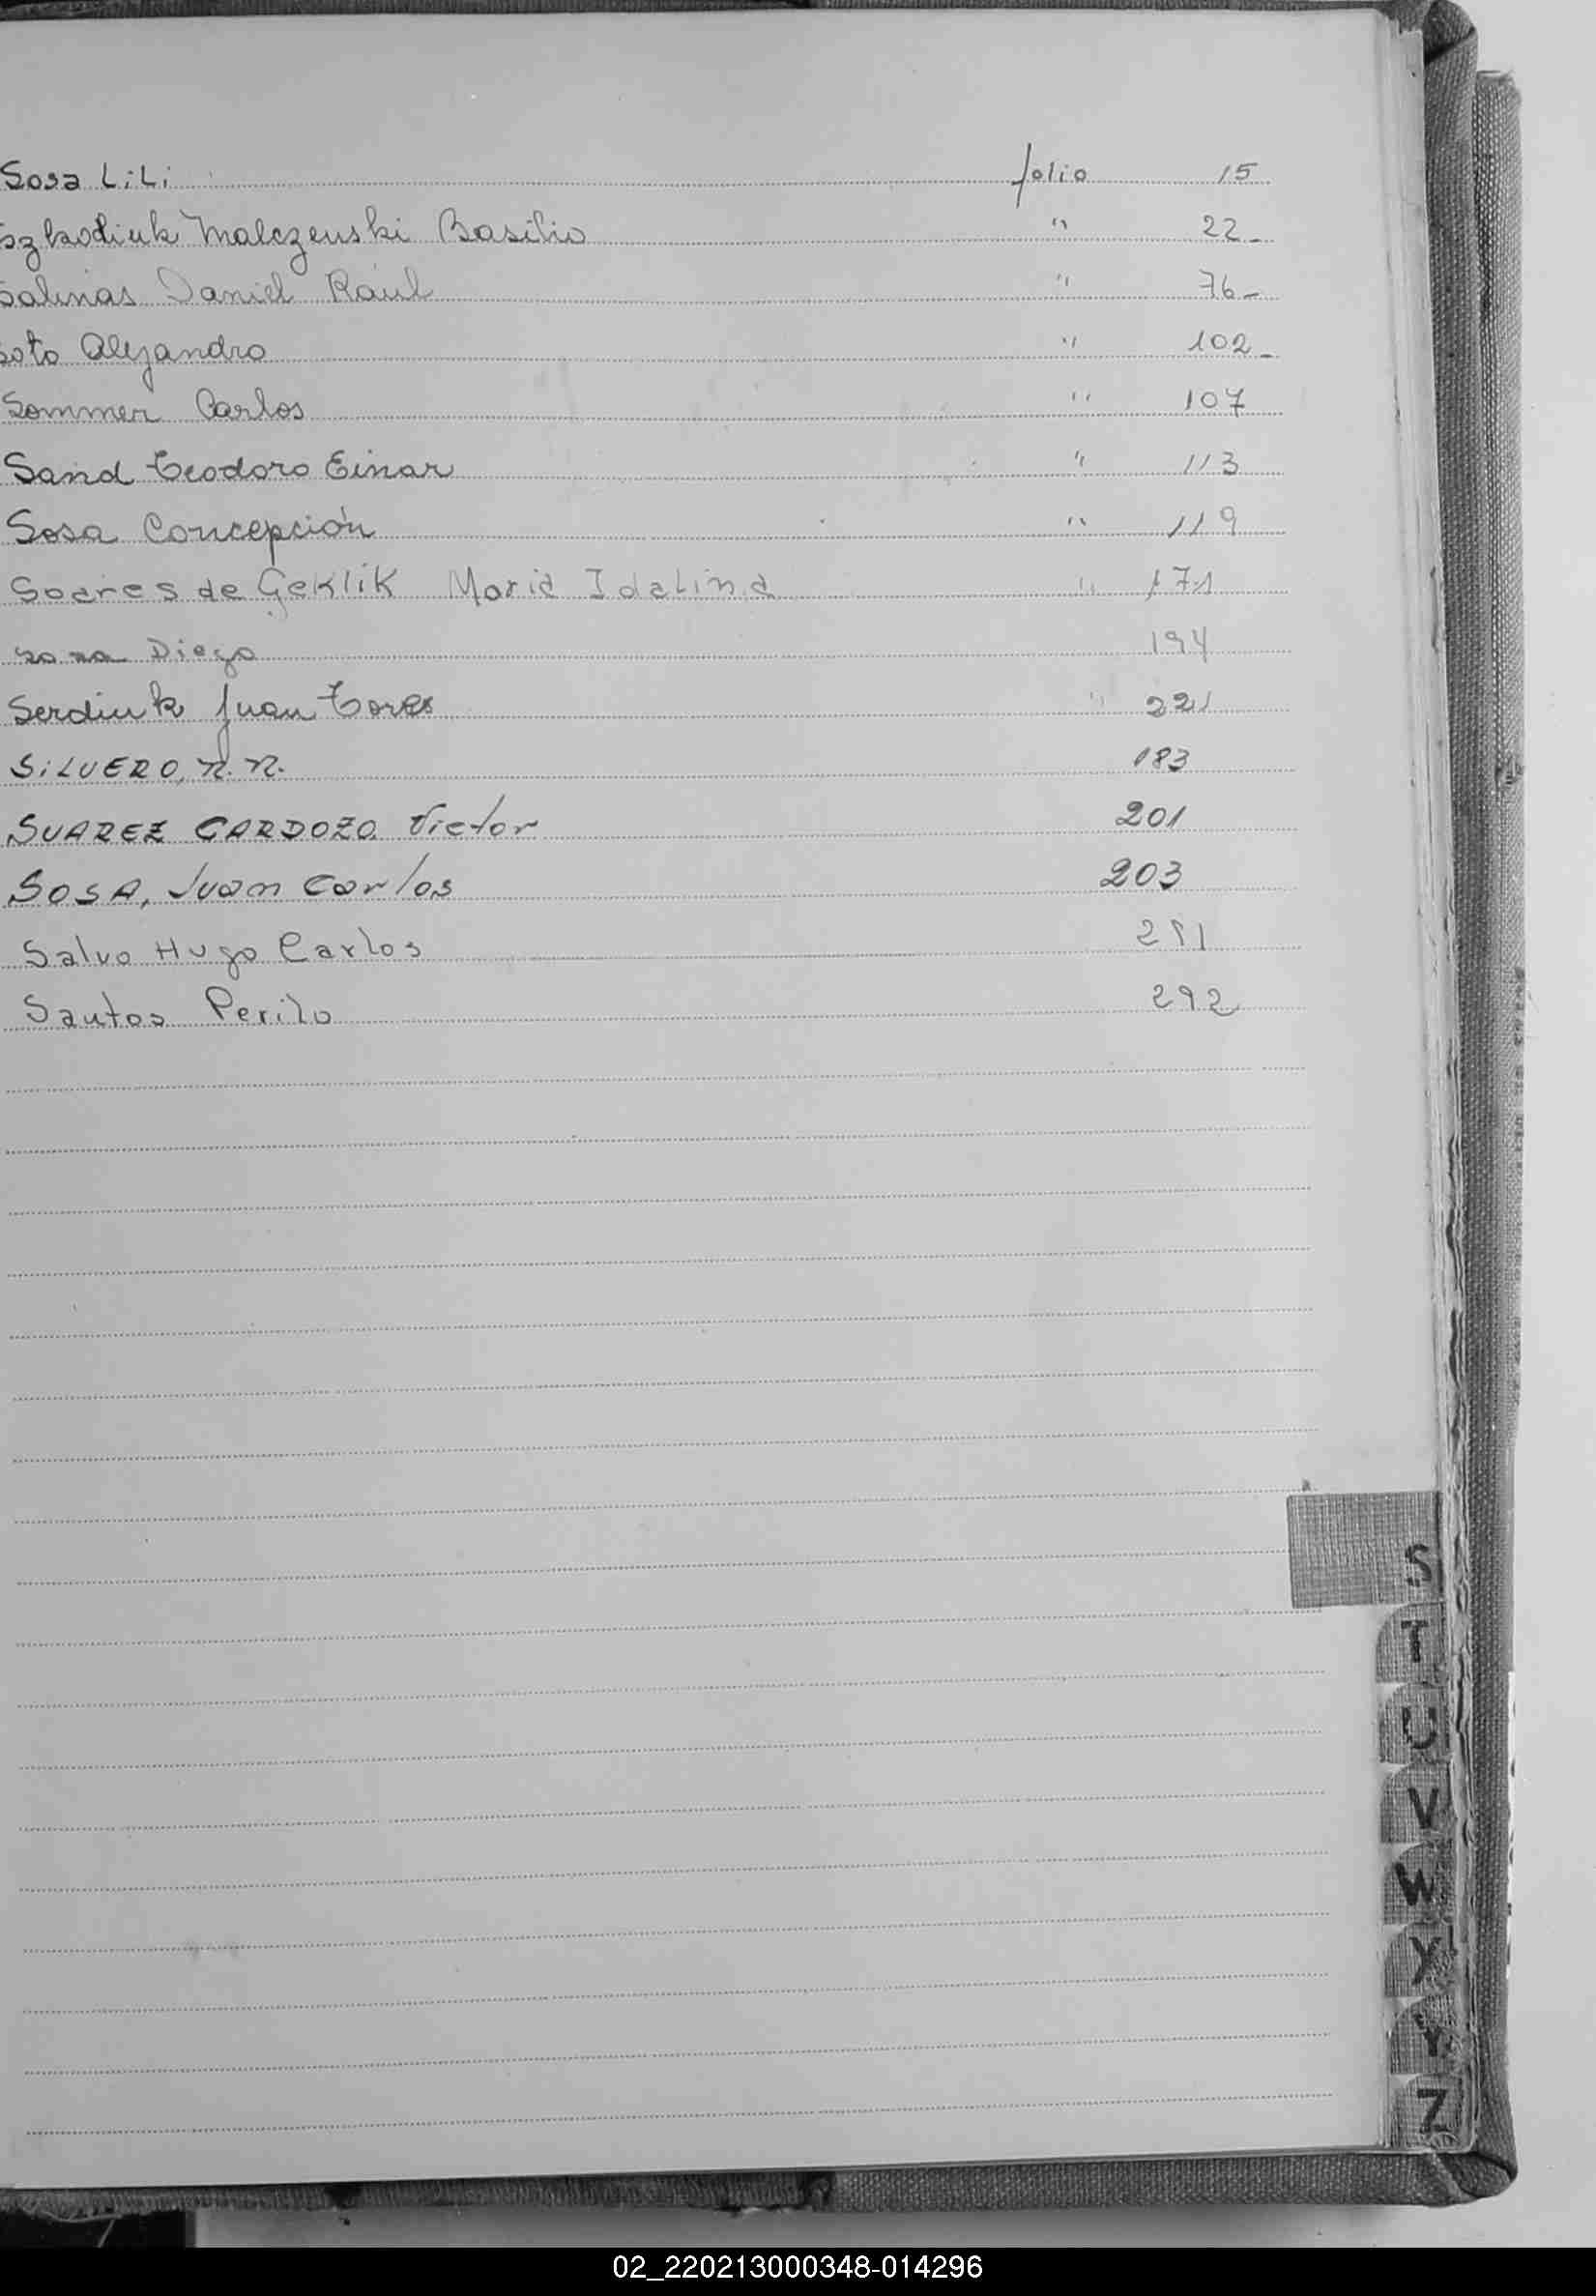 Sosa LiLi folio 15
Szkodiuk Malczenski Basilio " 22-
Salinas Daniel Raúl " 76-
Soto Alejandro " 102-
Sommer Carlos " 107
Sand Teodoro Einar " 113
Sosa Concepción " 119
Soares de Geklik Maria Idalina " 171
Diego 194
Serdiuk Juan " 221
SiLVERO, N.N. 183
SUAREZ CARDOZO Victor 201
SOSA, Juan Carlos 203
Salvo Hugo Carlos
Santos Perilo 292
S
T
U
V
W
X
Y
Z
02_220213000348-014296